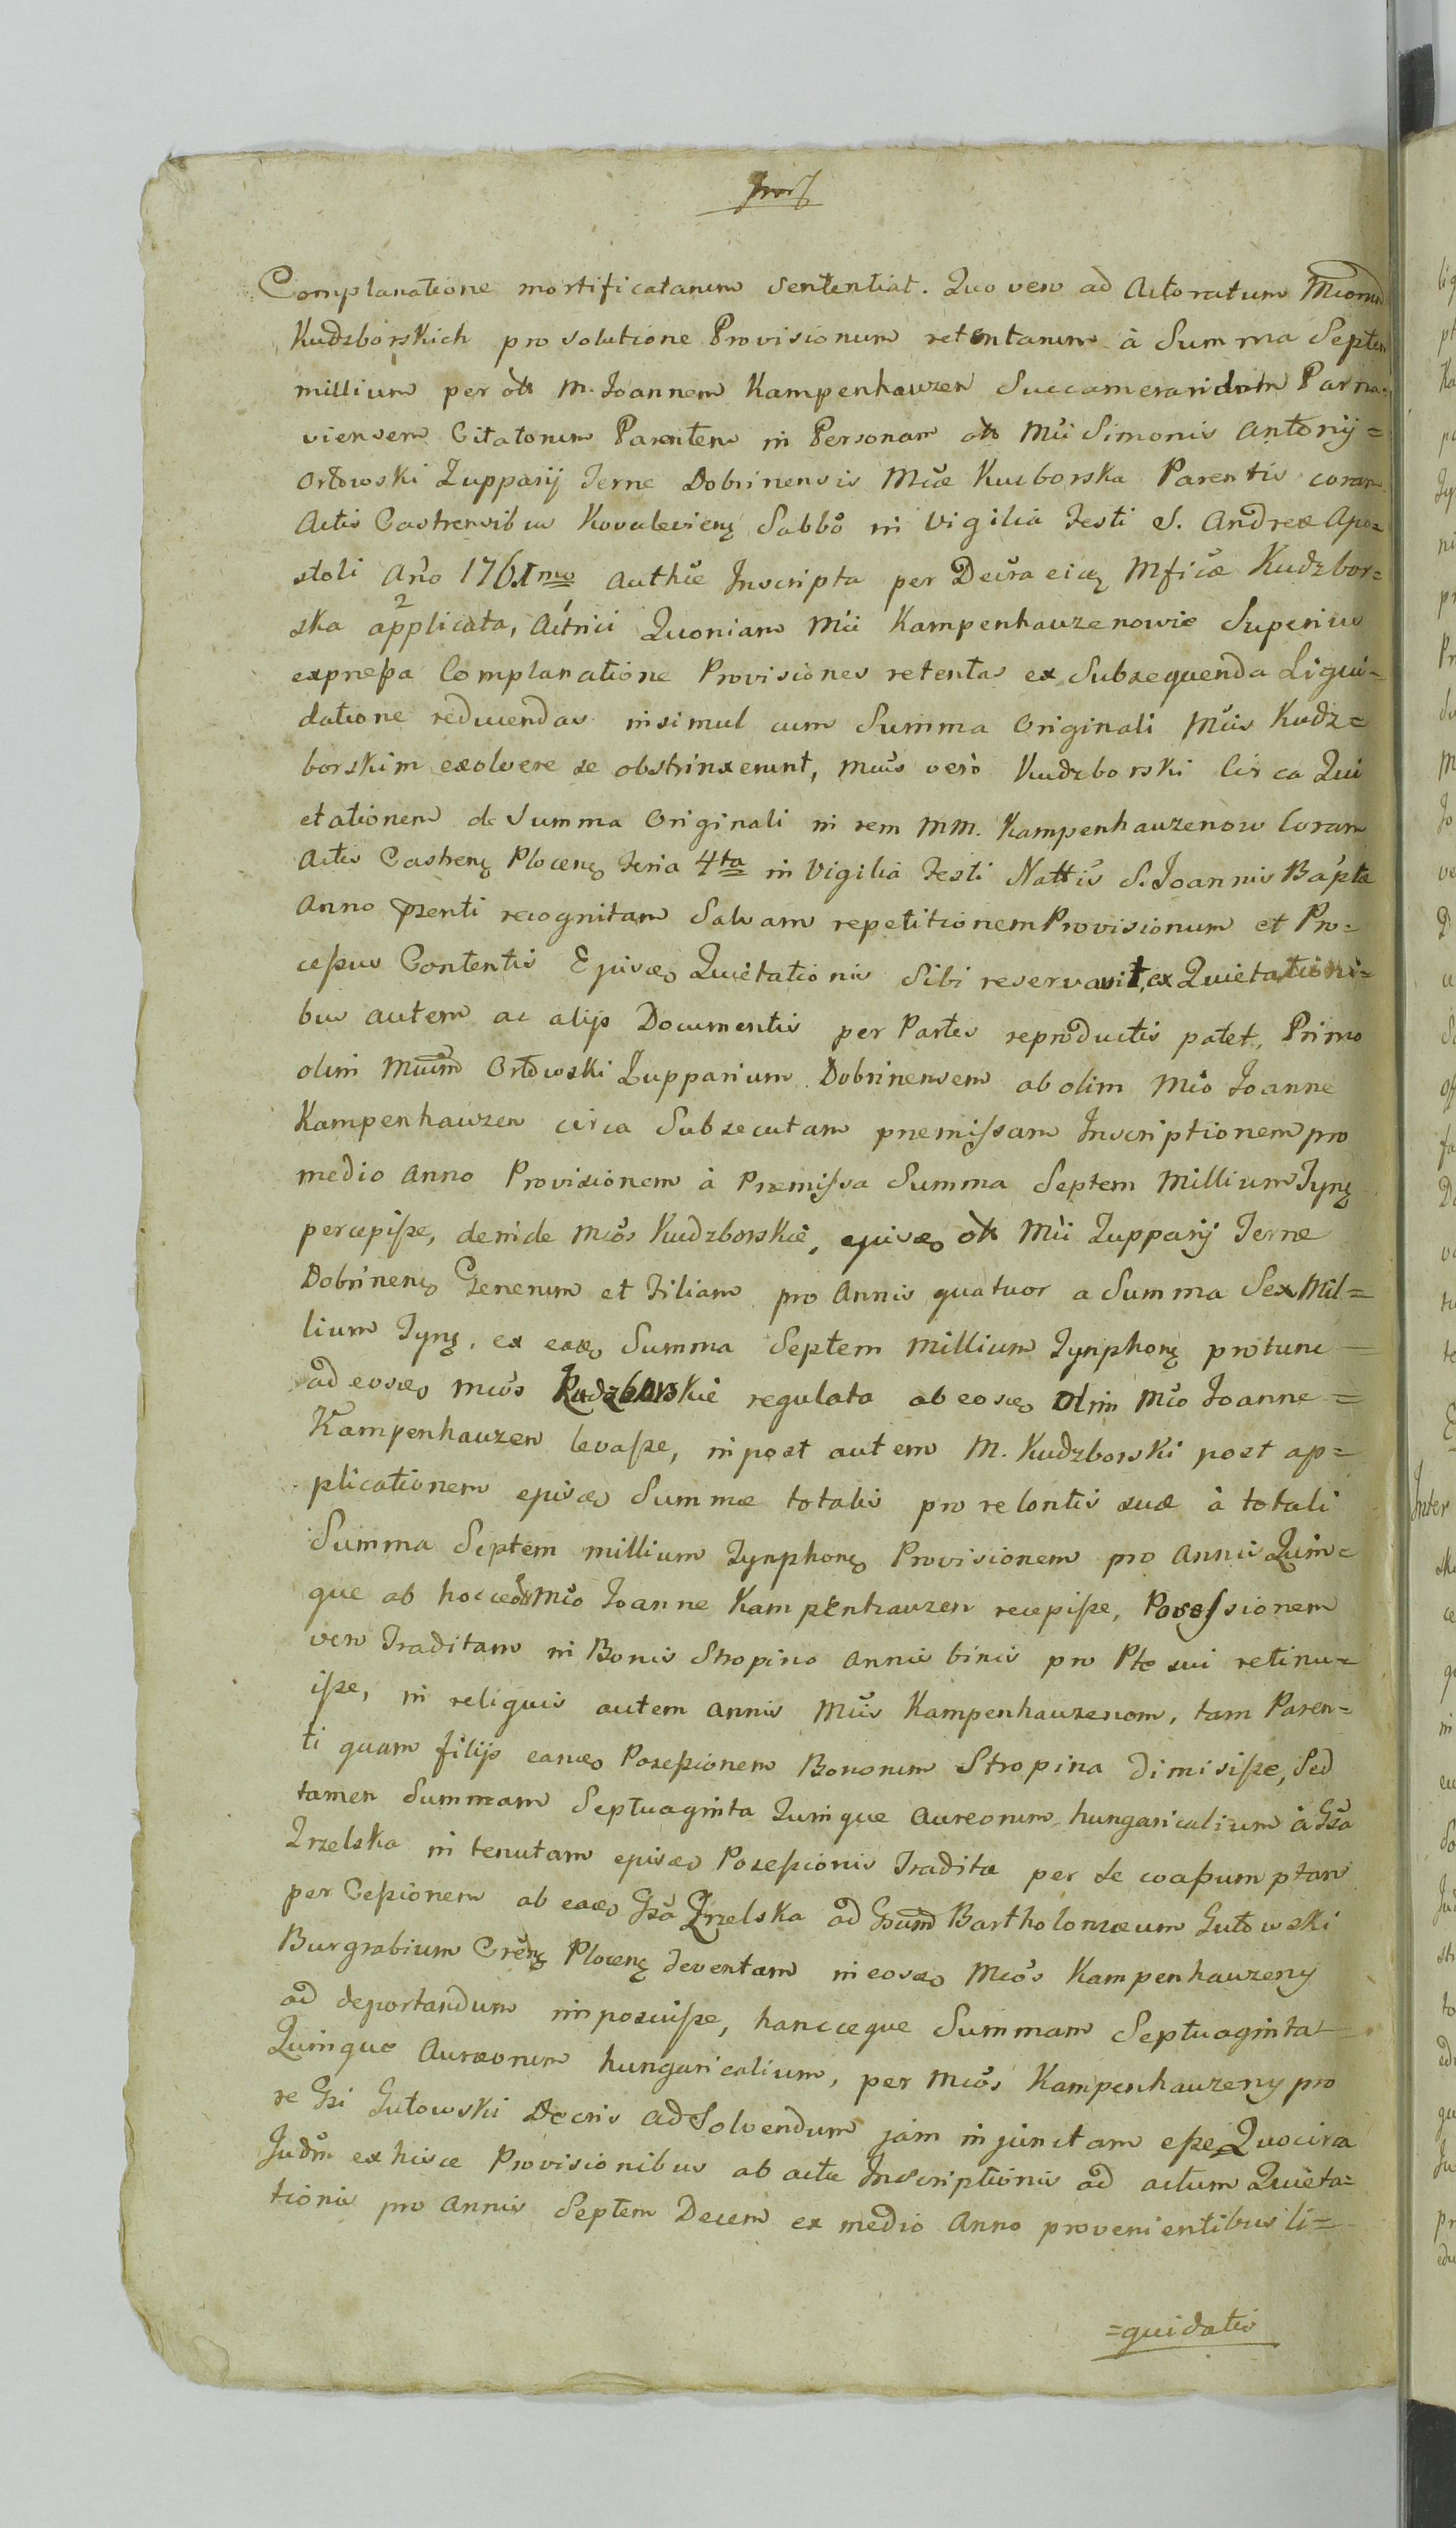 Complanatione mortificatarum Sententiat. Quo vero ad Actoratum Mcorum
Kudzborskich pro solutione Provisionum retentarum à Summa Septem
millium per olt M. Joannem Kampenhawzen Succamerarium Parna-
viensem Citatorum Parentem in Personam olt Mci Simonis Antonij=
Orłowski Zupparij Terrae Dobrinensis Mcae Kucborska Parentis coram
Actis Castrensibus Kovalevien Sabbo in Vigilia Festi S. Andreae Apo=
stoli Ano 1761mo Authce Inscripta per Decta eidem Mficae Kudzbor=
ska applicata, Actrici Quoniam Mci Kampenhauzenowie Superius
expressa Complanatione Provisiones retentas ex Subsequenda Liqui-
datione reducendas insimul cum Summa Originali Mcis Kudz=
borskim exolvere se obstrinxerunt, Mcus verò Kudzborski Circa Qui
etationem de Summa Originali in rem MM. Kampenhauzenow Coram
Actis Castren Plocen Feria 4ta in Vigilia Festi Nattis S. Joannis Bapta
Anno pzenti recognitam Salvam repetitionem Provisionum et Pro=
cessus Contentis Ejusdo Quietationis Sibi reservavit, ex Quietationi=
bus autem ac alijs Documentis per Partes reproductis patet, Primo
olim Mcum Orłowski Zupparium Dobrinensem ab olim Mco Joanne
Kampenhauzen circa Subsecutam praemissam Inscriptionem pro
medio Anno Provisionem à Praemissa Summa Septem Millium Tyn
percepisse, deinde Mcos Kudzborskie, ejusdo olt Mci Zupparij Terrae
Dobrinen Generum et Filiam pro Annis quatuor a Summa Sex Mil=
lium Tyn. ex eado Summa Septem Millium Tynphon protunc =
ad eosdo Mcos Kudzborskie regulata ab eosdo Olim Mco Joanne =
Kampenhauzen levasse, in post autem M. Kudzborski post ap=
plicationem ejusdo Summae totalis pro relontis suae à totali
Summa Septem millium Tynphon Provisionem pro Annis Quin=
que ab hocce olt Mco Joanne Kampenhauzen recepisse, Possessionem
vero Traditam in Bonis Stropino Annis binis pro Pte sui retinu=
isse, in reliquis autem annis Mcis Kampenhauzenom, tam Paren=
ti quam filijs eando Possessionem Bonorum Stropina dimisisse, Sed
tamen Summam Septuaginta Quinque Aureorum hungaricalium à Gsa
Zrzelska in tenutam ejusdo Possessionis Tradita per se coassumptam
per Cessionem ab eado Gsa Zrzelska ad Gsum Bartholomaeum Gutowski
Burgrabium Cren Plocen deventam in eosdo Mcos Kampenhauzeny
ad deportandum imposuisse, hancceque Summam Septuaginta=
Quinque Aureorum hungaricalium, per Mcos Kampenhauzeny pro
re Gsi Gutowski Decris ad Solvendum jam injunctam esse, Quocirca
Judm ex hisce Provisionibus ab actu Inscriptionis ad actum Quieta=
tionis pro Annis Septem Decem ex medio Anno provenientibus li=
=quidatis